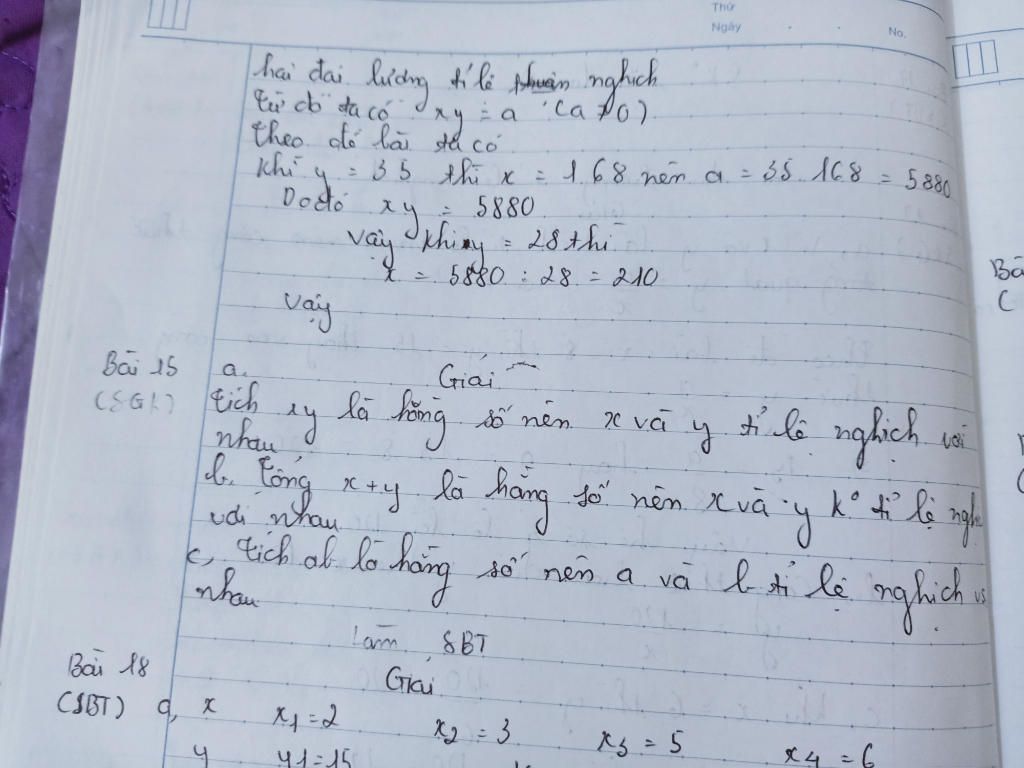 Thứ
Ngày
No.
hai đại lượng tỉ lệ nghịch
từ đó ta có xy = a (a ≠ 0)
theo đó bài ta có
khi y = 35 thì x = 168 nên a = 35 . 168 = 5880
Do đó xy = 5880
vậy khi y = 28 thì
x = 5880 : 28 = 210
vậy
Bài 15 a. Giải
(SGK) tích xy là hằng số nên x và y tỉ lệ nghịch với
nhau
b. tổng x+y là hằng số nên x và y k° tỉ lệ ngh
với nhau
c, tích ab là hằng số nên a và b tỉ lệ nghịch vs
nhau
Làm SBT
Bài 18 Giải
(SBT) a, x x1 = 2 x2 = 3 x3 = 5 x4 = 6
y y1 = 15
Bà
(